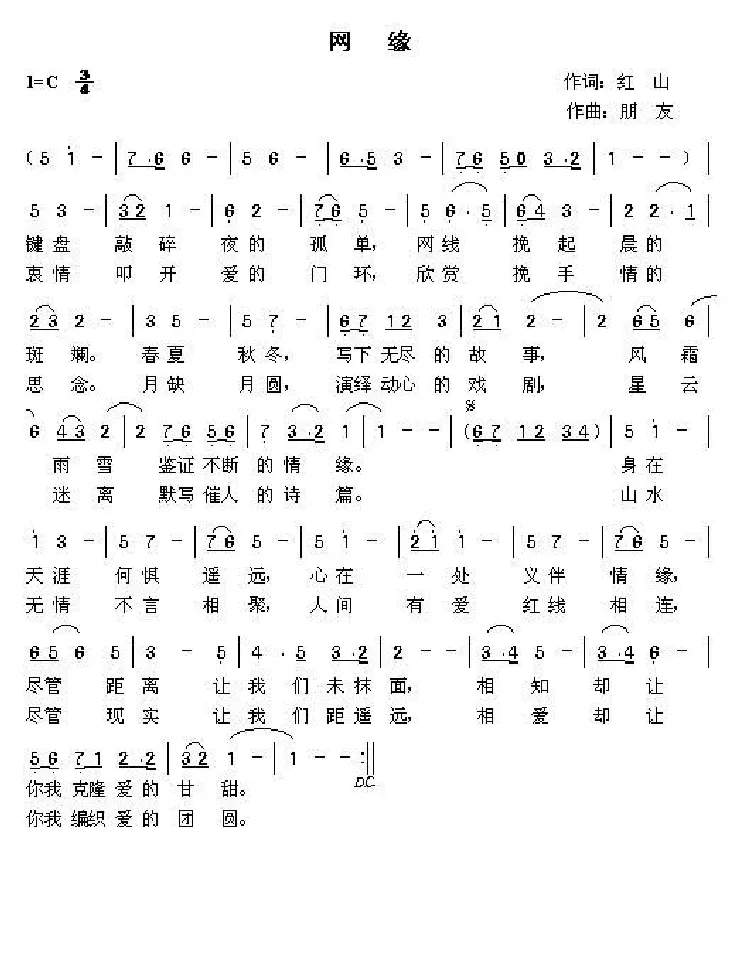 网 缘
1=C 3/4 作词：红 山
作曲：朋 友
(5 1 - | 7·6 6 - | 5 6 - | 6·5 3 - | 76 50 3·2 | 1 - - ) |
5 3 - | 32 1 - | 6 2 - | 76 5 - | 5 6·5 | 64 3 - | 2 2·1 |
键盘 敲碎 夜的 孤单，网线 挽起 晨的
哀情 叩开 爱的 门环，欣赏 挽手 情的
23 2 - | 3 5 - | 5 7 - | 67 12 3 | 21 2 - | 2 65 6 |
斑斓。春夏 秋冬，写下无尽的故事，风霜
思念。月缺 月圆，演绎动心的戏剧，星云
6 43 2 | 2 76 56 | 7 3·2 1 | 1 - - | (67 12 34) | 5 1 - |
雨雪 鉴证不断的情缘。 身在
迷离 默写催人的诗篇。 山水
1 3 - | 5 7 - | 76 5 - | 5 1 - | 21 1 - | 5 7 - | 76 5 - |
天涯 何惧 遥远，心在 一处 义伴 情缘，
无情 不言 相聚，人间 有爱 红线 相连，
65 6 5 | 3 - 5 | 4·5 3·2 | 2 - - | 3·4 5 - | 3·4 6 - |
尽管 距离 让我们未抹面，相知却让
尽管 现实 让我们距遥远，相爱却让
56 71 2·2 | 32 1 - | 1 - - :||
D.C.
你我 克隆 爱的 甘甜。
你我 编织 爱的 团圆。